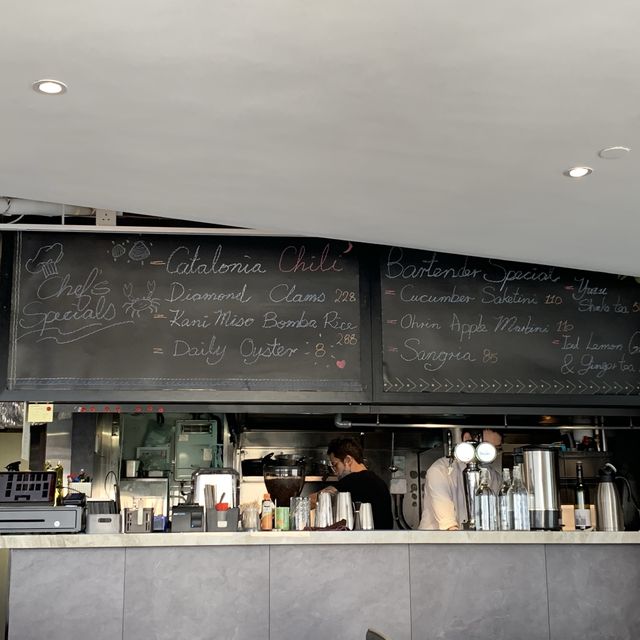 Chef's
Specials
Catalonia Chili
Diamond Clams 228
Kani Miso Bomba Rice
288
Daily Oyster 8
Bartender Special
Cucumber Saketini 110
Ohrin Apple Martini 110
Sangria 85
Yuzu
Shoto tea
Iced Lemon G
& Ginger tea